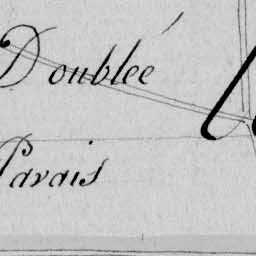 Doublée
Parais